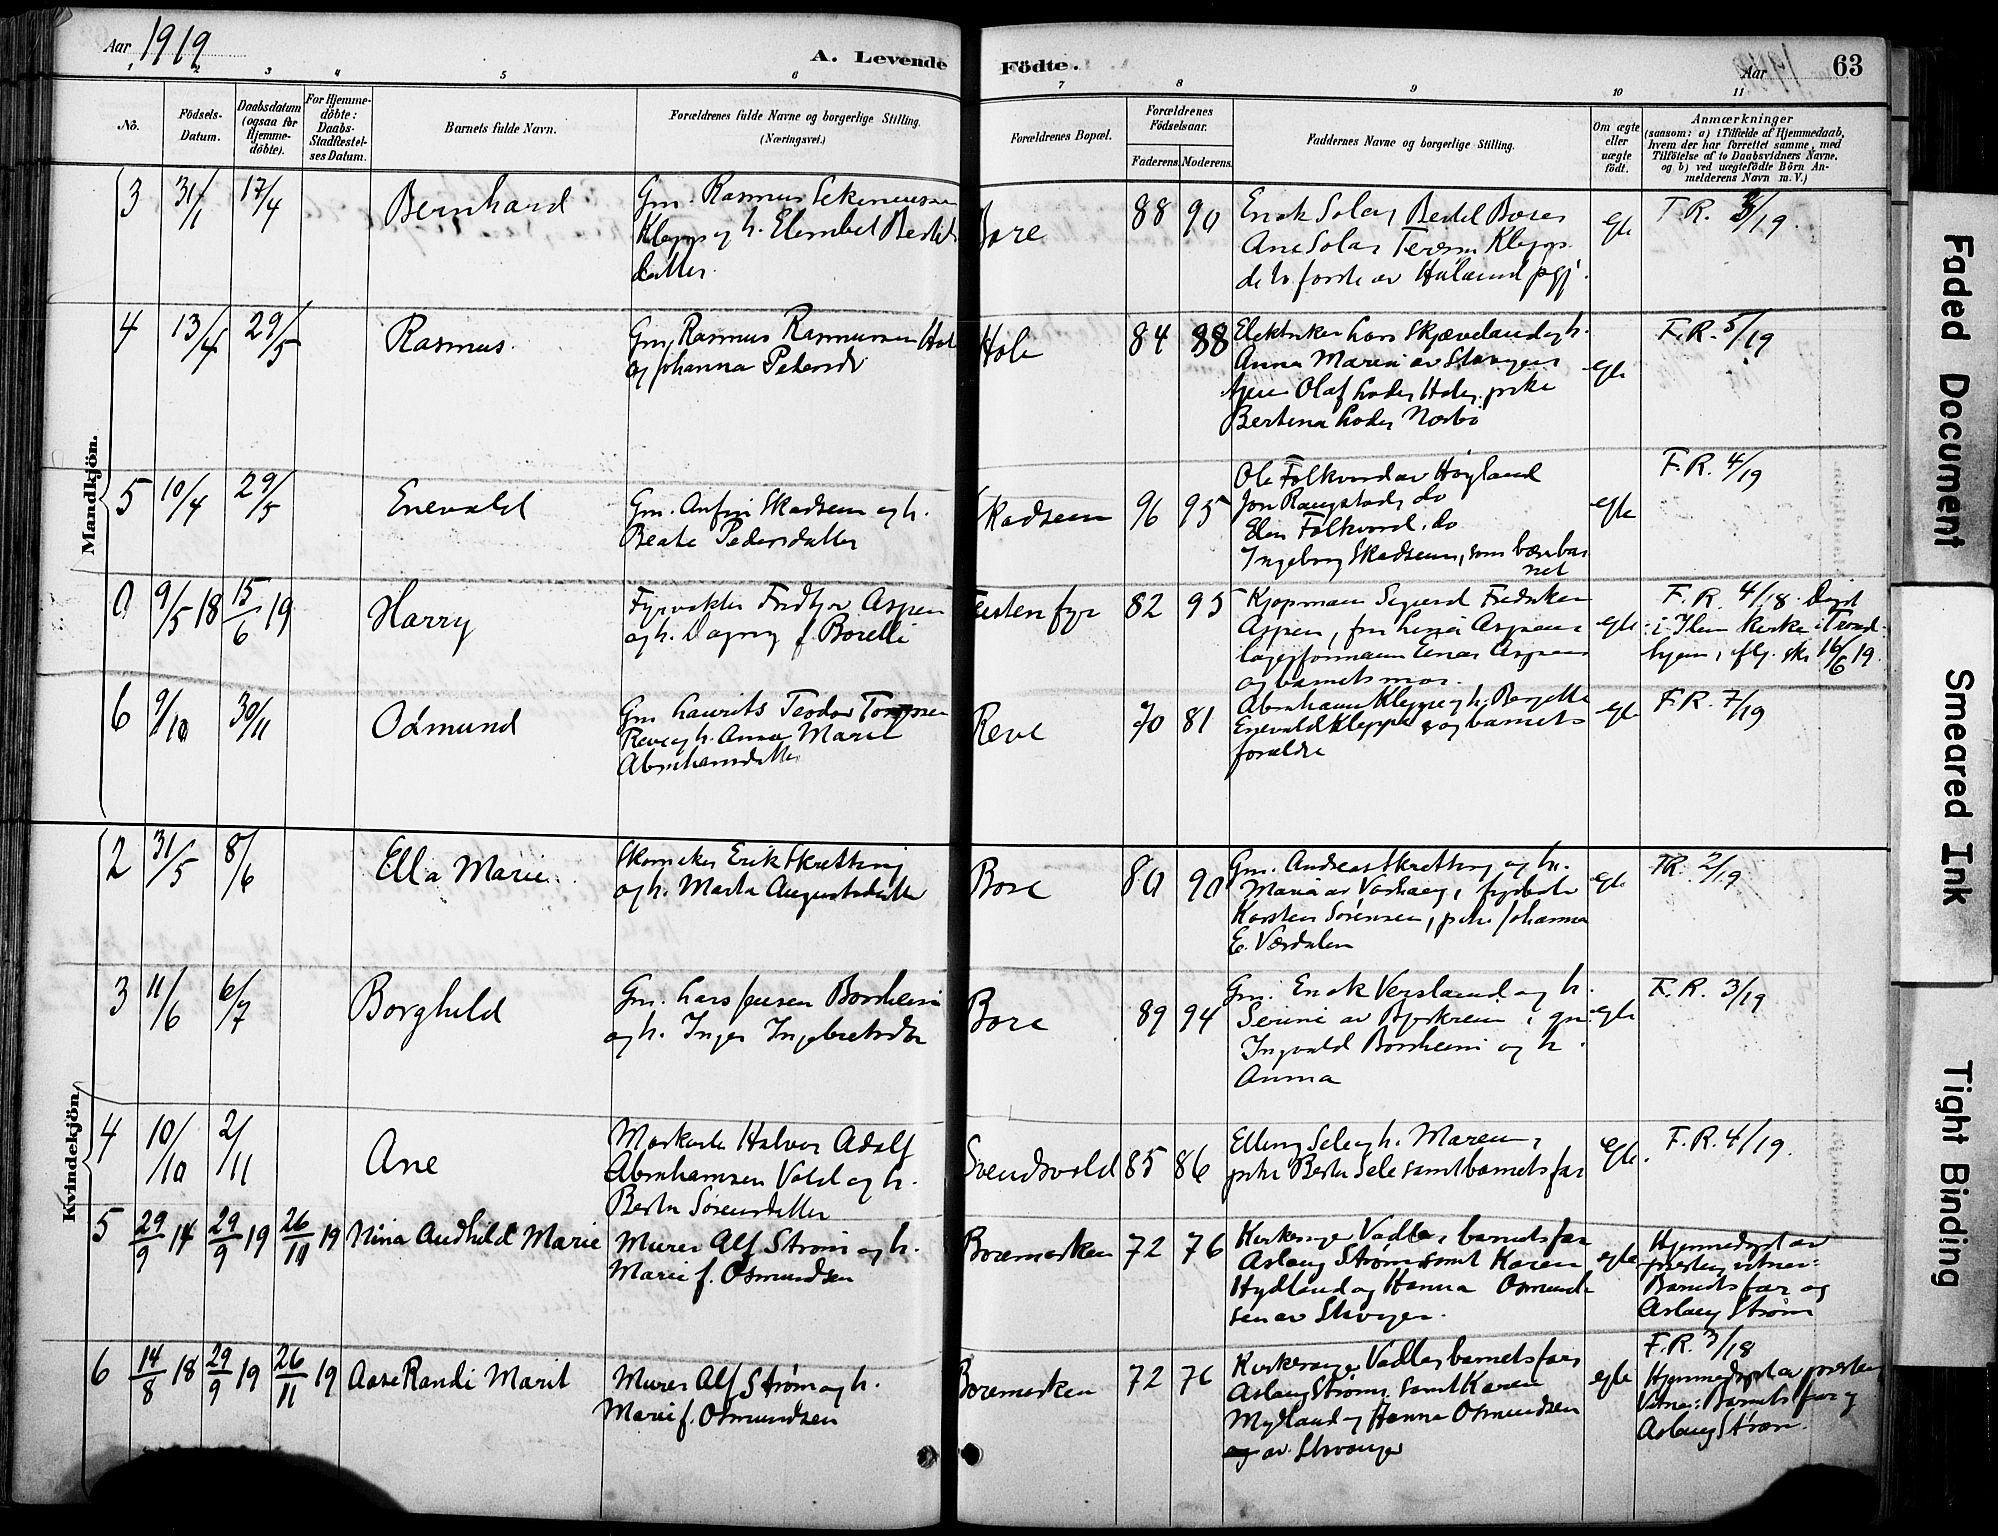 Aar 1919
A. Levende Födte.
Aar
63
1 2 3 4 5 6 7 8 9 10 11
No.
Födsels-Datum.
Daabsdatum (ogsaa for Hjemme-döbte).
For Hjemme-döbte: Daabs-Stadfæstel-ses Datum.
Barnets fulde Navn.
Forældrenes fulde Navne og borgerlige Stilling.
(Næringsvei.)
Forældrenes Bopæl.
Forældrenes Födselsaar.
Faderens. Moderens.
Faddernes Navne og borgerlige Stilling.
Om ægte eller uægte födt.
Anmærkninger
(saasom: a) i Tilfælde af Hjemmedaab,
hvem der har forrettet samme, med
Tilföielse af to Daabsvidners Navne,
og b) ved uægtefödte Börn An-
melderens Navn m. V.)
Mandkjön.
3 31/1 17/4 Bernhard
Gm. Rasmus
Klepp og h.
datter.
Bore 88 90
Ane
de to første av
egte
4 13/4 29/5 Rasmus.
Gm. Rasmus Rasmussen Hole
og Johanna Pedersdr
Hole 84 88
Elektriker Lars Skjæveland og h.
Anna Marie av
Olaf
Bertina Nærbö
egte
F.R. 5/19
5 10/4 29/5 Enevald
Gm. Anfin Skadsem og h.
Beate Pedersdatter
Skadsem 96 95
Ole Folkvord av Høyland
Jon do
Elen Folkvord do
Ingeborg Skadsem, som bar bar
net
egte
F.R. 4/19
0 9/5 18 15/6 19 Harry
Fyrvokter Fridtjov Aspen
og h. Dagny f. Borelli
Feistenfyr 82 95
Kjøpmann Sigurd Fredriksen
Aspen, fru Aspen,
lagerformann Einar Aspen
og barnets mor.
egte
F.R. 4/18. Døpt
i Ilen kirke i Trond-
hjem, 16/6 19.
6 9/10 30/11 Odmund
Gm Laurits Teodor
Reve og h. Anna Marie
Abrahamsdatter
Reve 70 81
Abraham Kleppe og h. Bergette
Enevald Kleppe og barnets
forældre
egte
F.R. 7/19
Kvindekjön.
2 31/5 8/6 Ella Marie
Skomaker Erik Skretting
og h. Marta Augustsdatter
Bore 80 90
Gm. Andreas Skretting og h.
Maria av Varhaug,
Karsten Sørensen, pike Johanna
E. Værdalen
egte
F.R. 2/19
3 11/6 6/7 Borghild
Gm. Lars Jensen Borsheim
og h. Inger Ingebretsdtr
Bore 89 94
Gm. Enok Versland og h.
Serine av Bjerkreim, gm.
Ingvald Borsheim og h.
Anna
egte
F.R. 3/19
4 10/10 2/11 Ane
Halvor Adolf
Abrahamsen Vold og h.
Berta Sørensdatter
Svendsvold 85 86
Elling Sele og h. Maren,
pike Berta Sele samt barnets far
egte
F.R. 4/19.
5 29/9 14 29/9 19 26/10 19 Nina Audhild Marie
Murer Alf Strøm og h.
Marie f. Osmundsen
Boremarken 72 76
Kirkesanger Vadla, barnets far
Aslaug Strøm samt Karen
Hydland og Hanna Osmund-
sen av Stvanger.
egte
Hjemmedøpt av
presten, vitner:
Barnets far og
Aslaug Strøm
6 14/8 18 29/9 19 26/11 19 Aase Randi Marit
Murer Alf Strøm og h.
Marie f. Osmundsen
Boremarken 72 76
Kirkesanger Vadla, barnets far,
Aslaug Strøm samt Karen
Mydland og Hanna Osmundsen
av Stvanger
egte
F.R. 3/18
Hjemmedøpt av presten,
Vitner: Barnets far og
Aslaug Strøm.
Faded Document
Smeared Ink
Tight Binding